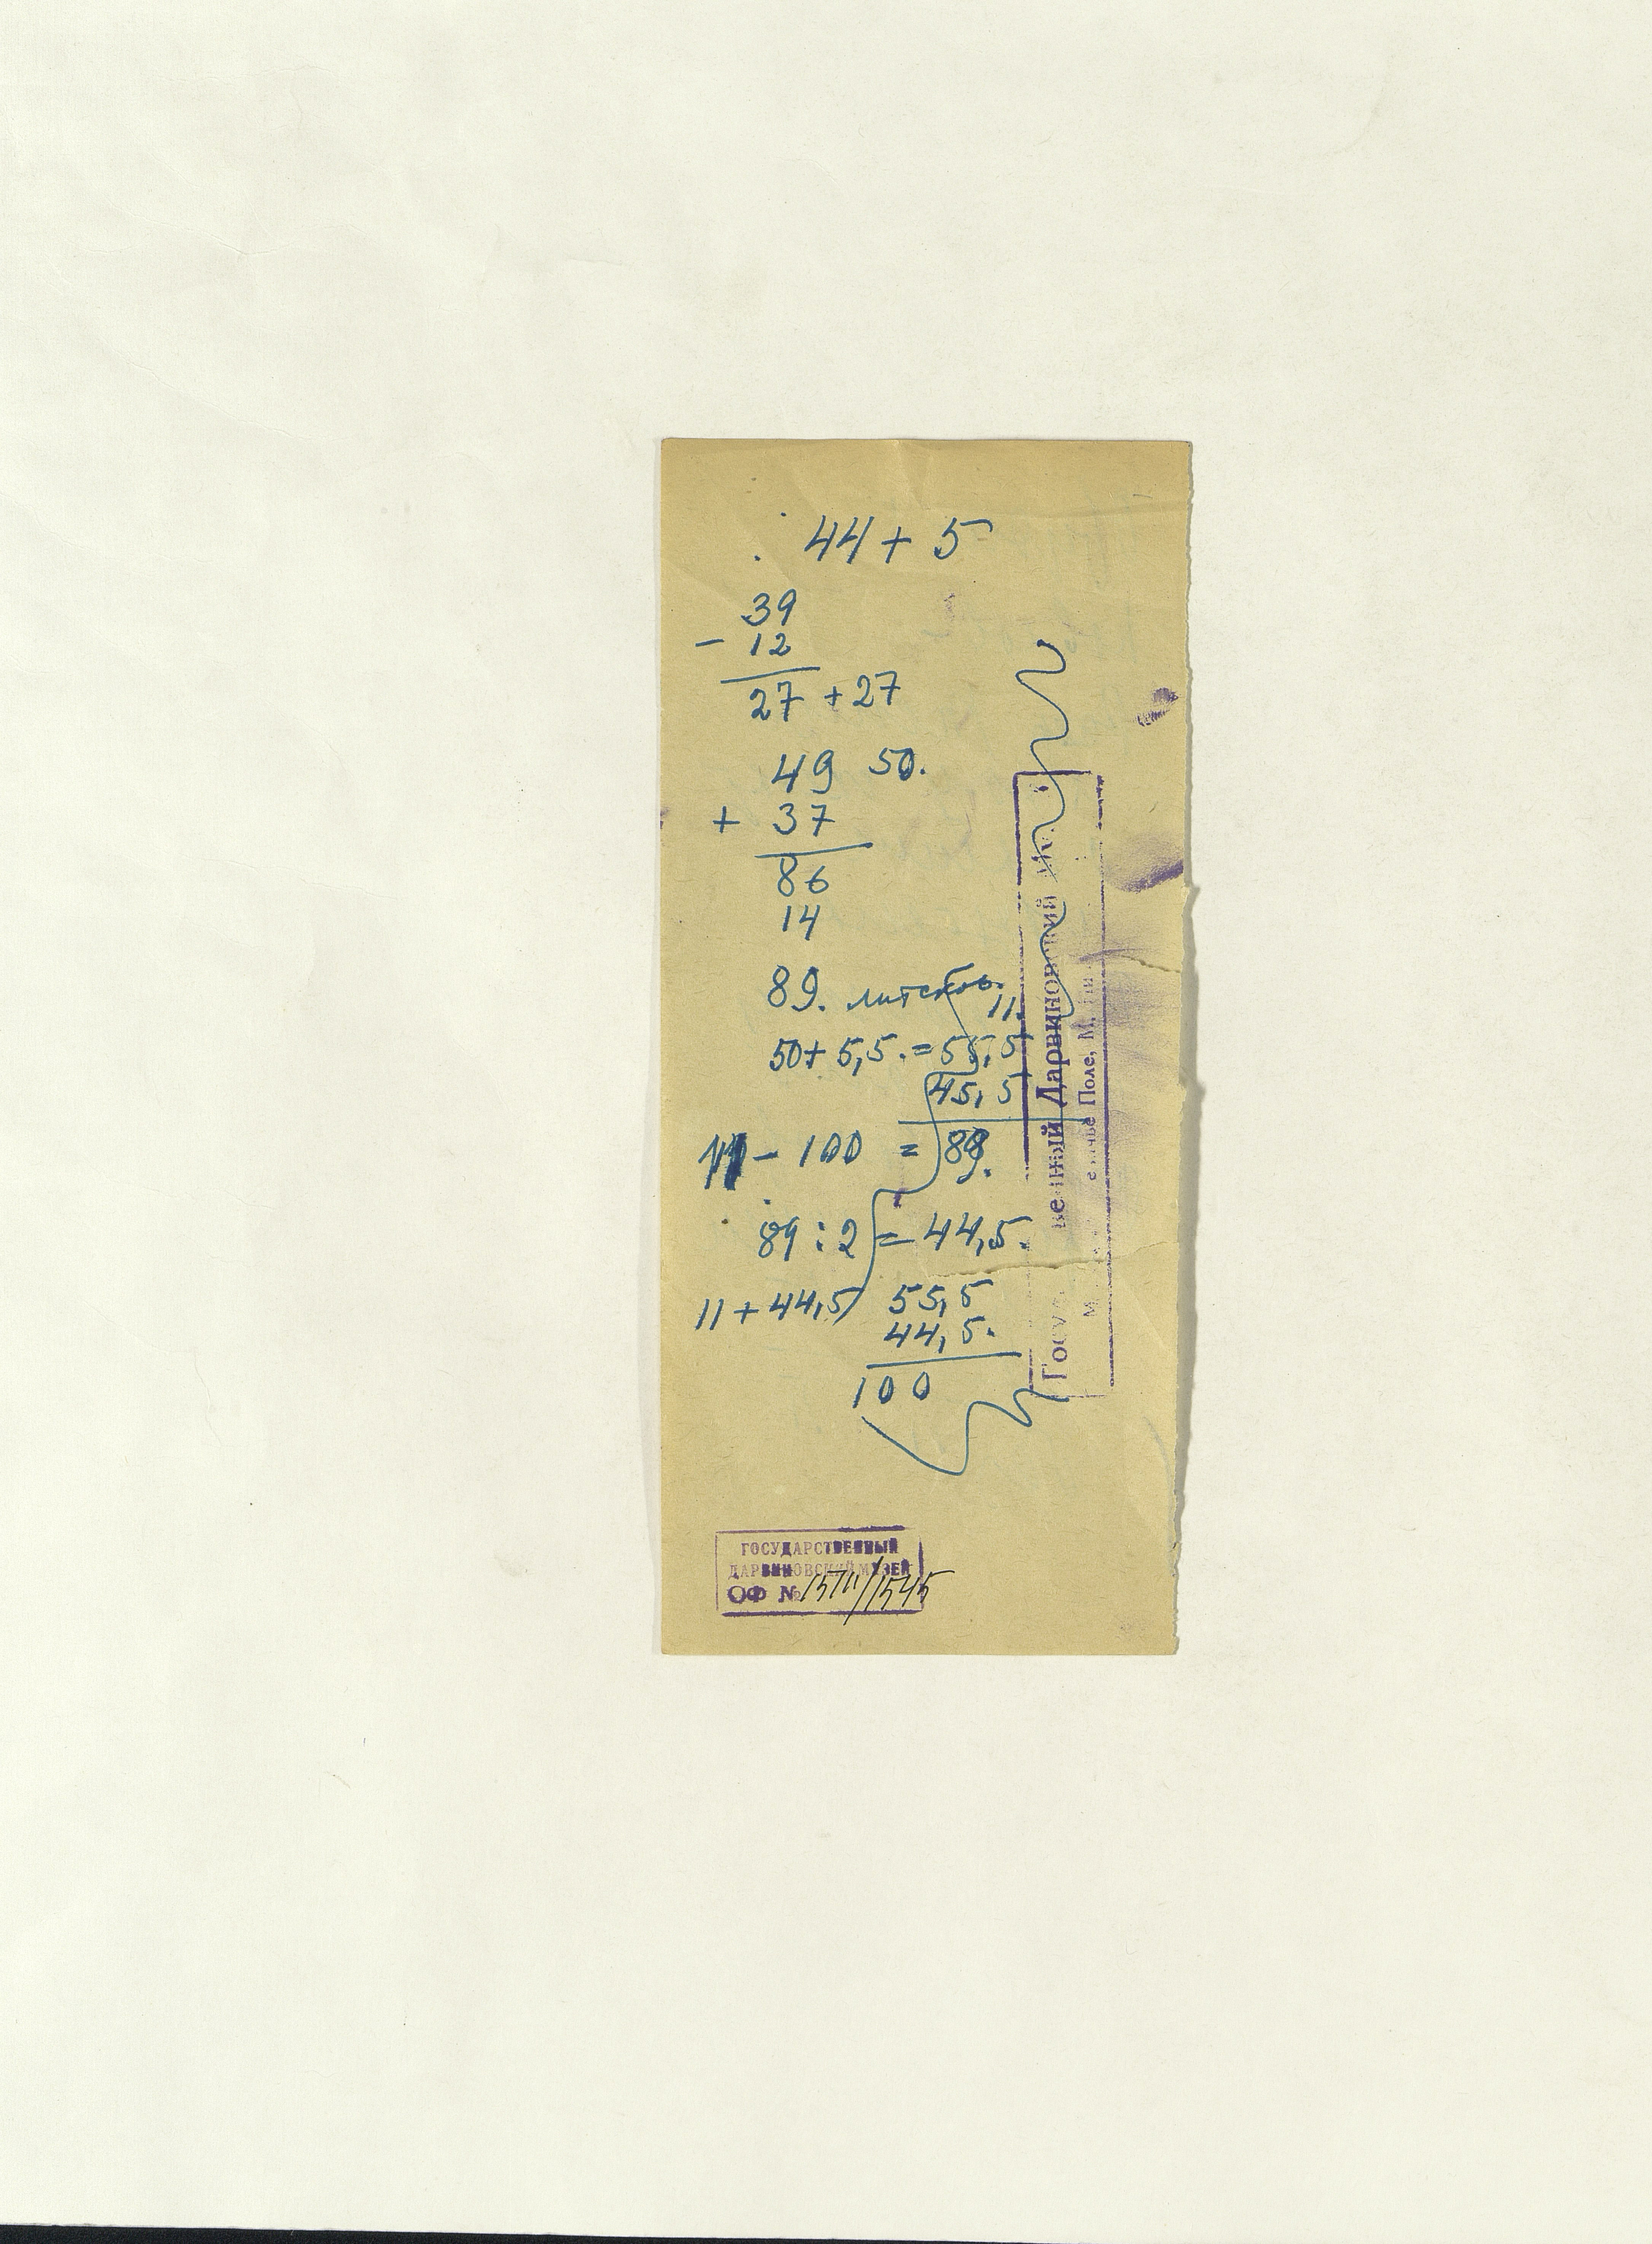 44 + 5
39
- 12
27 + 27
49 50.
+ 37
86
14
89.
11.
50 + 5,5. = 55,5
45,5
11 - 100 = 89.
89 : 2 = 44,5.
11 + 44,5 55,5
44,5.
100
Дарвиновский
Поле, М.
ГОСУДАРСТВЕННЫЙ
ДАРВИНОВСКИЙ МУЗЕЙ
ОФ № /1545